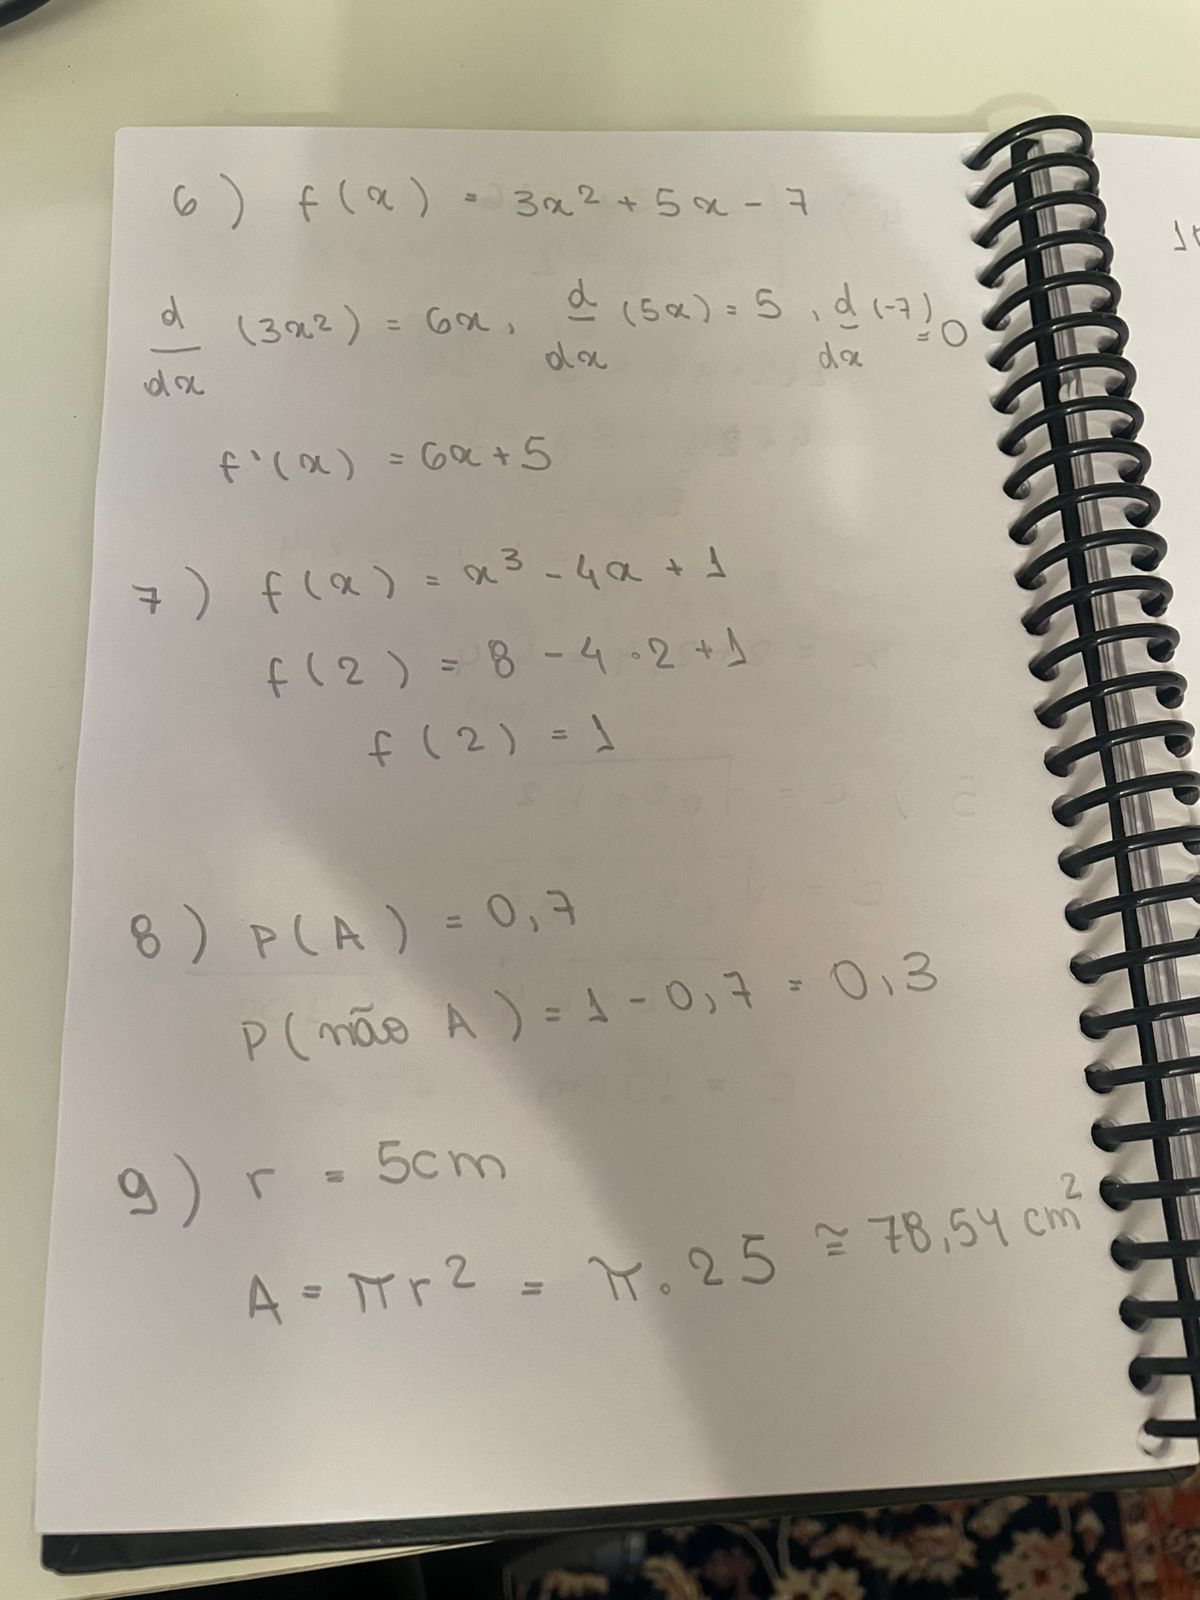 6) f(x) = 3x² + 5x - 7
d/dx (3x²) = 6x, d/dx (5x) = 5, d/dx (-7) = 0
f'(x) = 6x + 5
7) f(x) = x³ - 4x + 1
f(2) = 8 - 4·2 + 1
f(2) = 1
8) P(A) = 0,7
P(não A) = 1 - 0,7 = 0,3
9) r = 5cm
A = πr² = π·25 ≅ 78,54 cm²